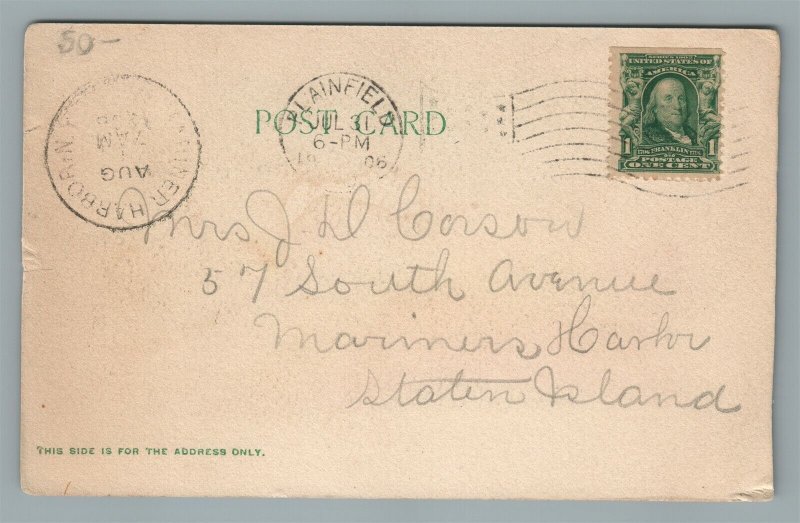 50-
POST CARD
PLAINFIELD
JUL 31
6-PM
06
MARINER HARBOR N.
AUG
7 AM
SERIES 1902
UNITED STATES OF
AMERICA
1706 FRANKLIN 1790
1 POSTAGE 1
ONE CENT
Mrs J D Corson
57 South Avenue
Mariners Harbr
Staten Island
THIS SIDE IS FOR THE ADDRESS ONLY.